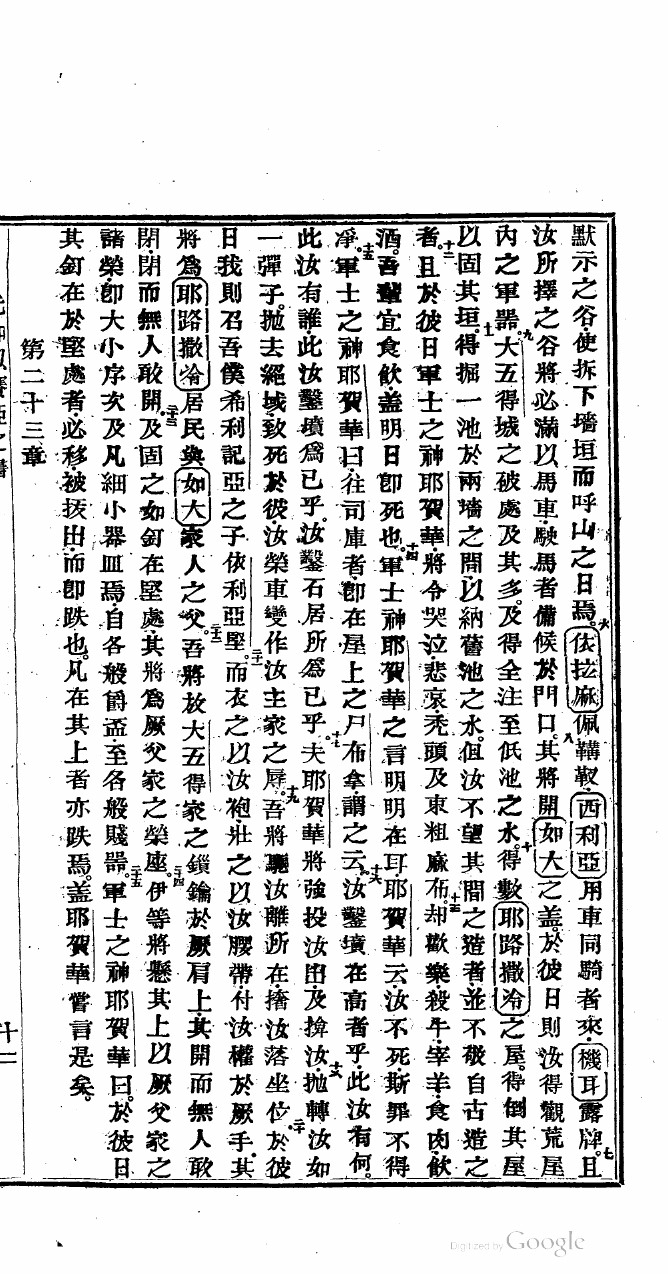 默示之谷使拆下墻垣而呼山之日焉六依拉麻佩鞲靫西利亞用車同騎者來機耳露牌七且
汝所擇之谷將必滿以馬車駛馬者備候於門口八其將開如大之盖於彼日則汝得觀荒屋
內之軍噐九大五得城之破處及其多及得全注至低池之水十得數耶路撒冷之屋得倒其屋
以固其垣十一得掘一池於兩墻之間以納舊池之水但汝不望其間之造者並不敬自古造之
者十二且於彼日軍士之神耶賀華將令哭泣悲哀禿頭及束粗麻布十三却歡樂殺牛宰羊食肉飲
酒吾輩宜食飲盖明日即死也十四軍士神耶賀華之言明明在耳耶賀華云汝不死斯罪不得
凈十五軍士之神耶賀華曰往司庫者即在屋上之尸布拿謂之云十六汝鑿墳在高者乎此汝有何
此汝有誰此汝鑿墳爲已乎汝鑿石居所爲已乎十七夫耶賀華將強投汝出及揜汝十八拋轉汝如
一彈子拋去絕域致死於彼汝榮車變作汝主家之辱十九吾將驅汝離所在擠汝落坐位二十於彼
日我則召吾僕希利記亞之子依利亞堅二十一而衣之以汝袍壯之以汝腰帶付汝權於厥手其
將爲耶路撒冷居民與如大家人之父二十二吾將放大五得家之鎖鑰於厥肩上其開而無人敢
閉閉而無人敢開二十三及固之如釘在堅處其將爲厥父家之榮座二十四伊等將懸其上以厥父家之
諸榮即大小序次及凡細小器皿焉自各般爵盃至各般賤噐二十五軍士之神耶賀華曰於彼日
其釘在於堅處者必移被拔出而即跌也凡在其上者亦跌焉盖耶賀華嘗言是矣
第二十三章
十二
Digitized by Google